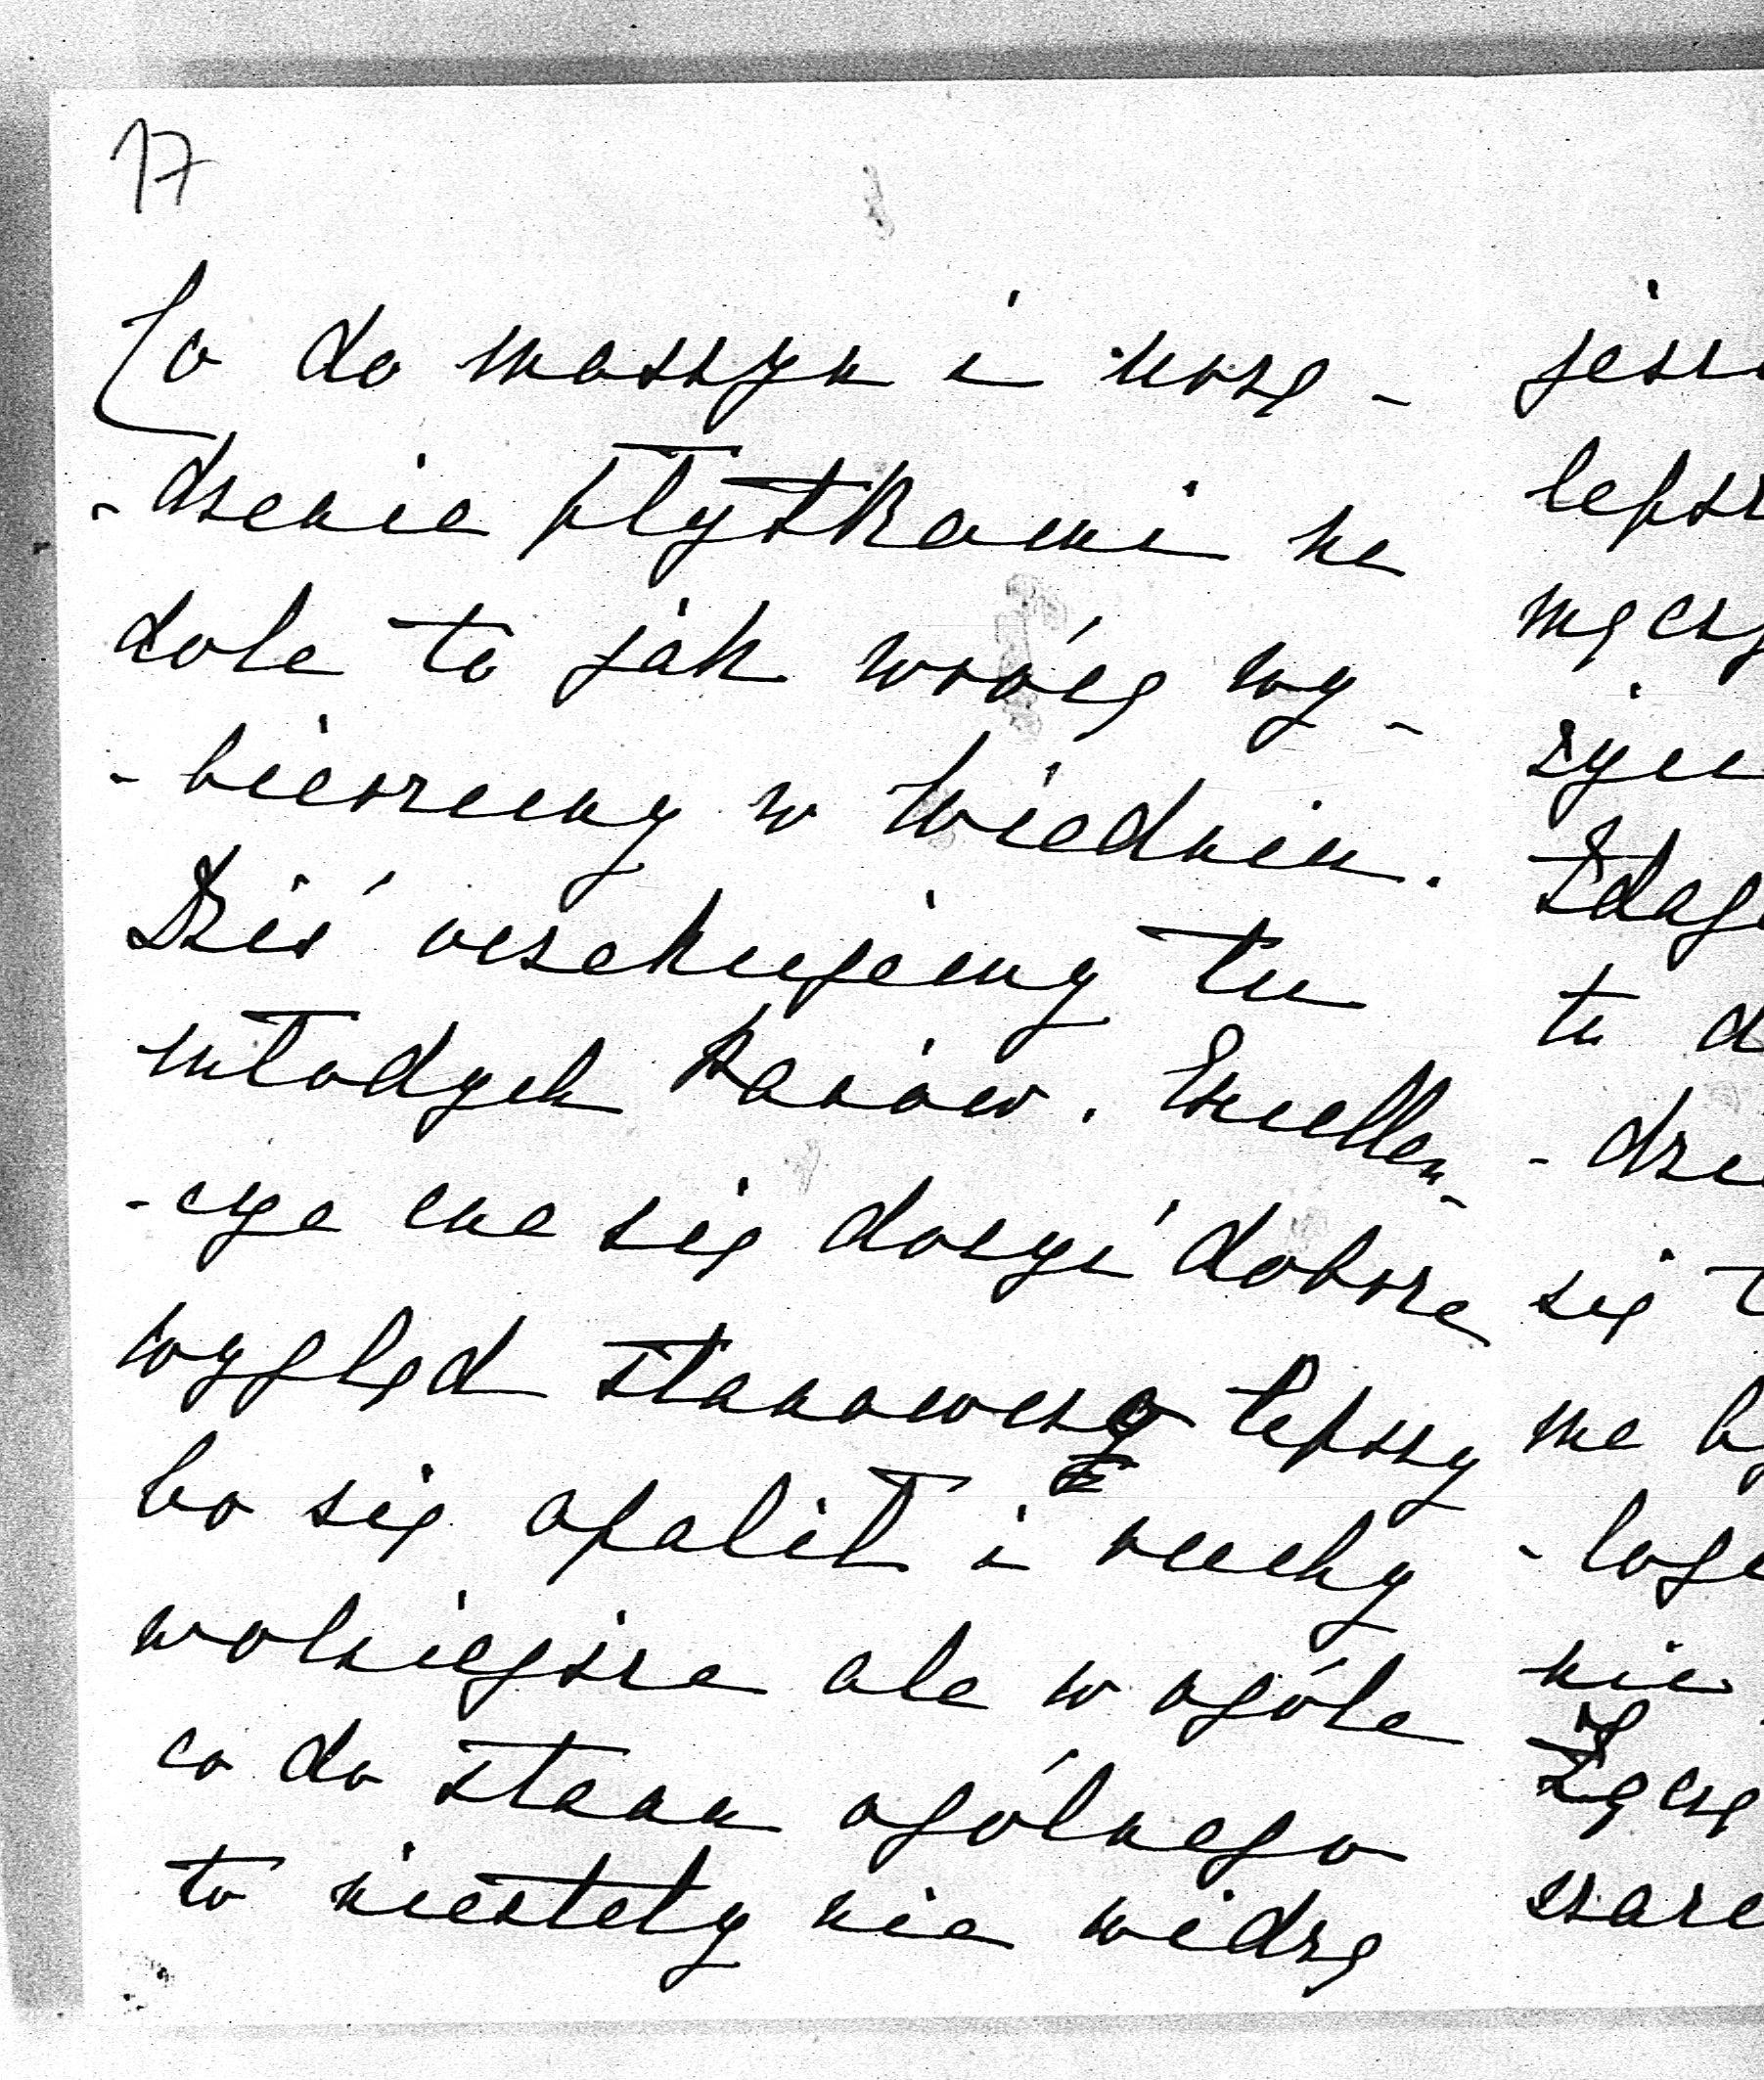 17
Co do maszyn i urzą-
-dzenia płytkami na
dole to jak wrócę wy-
-bierzemy w Wiedniu.
Dziś oczekujemy tu
młodych Panów. Excellen-
-cya ma się dosyć dobrze
wygląd stanowczo lepszy
bo się opalił i ruchy
wolniejsze ale w ogóle
co do stanu ogólnego
to niestety nie widzę
lepsz
męczy
życi
tu d
-dze
się t
me b
nie